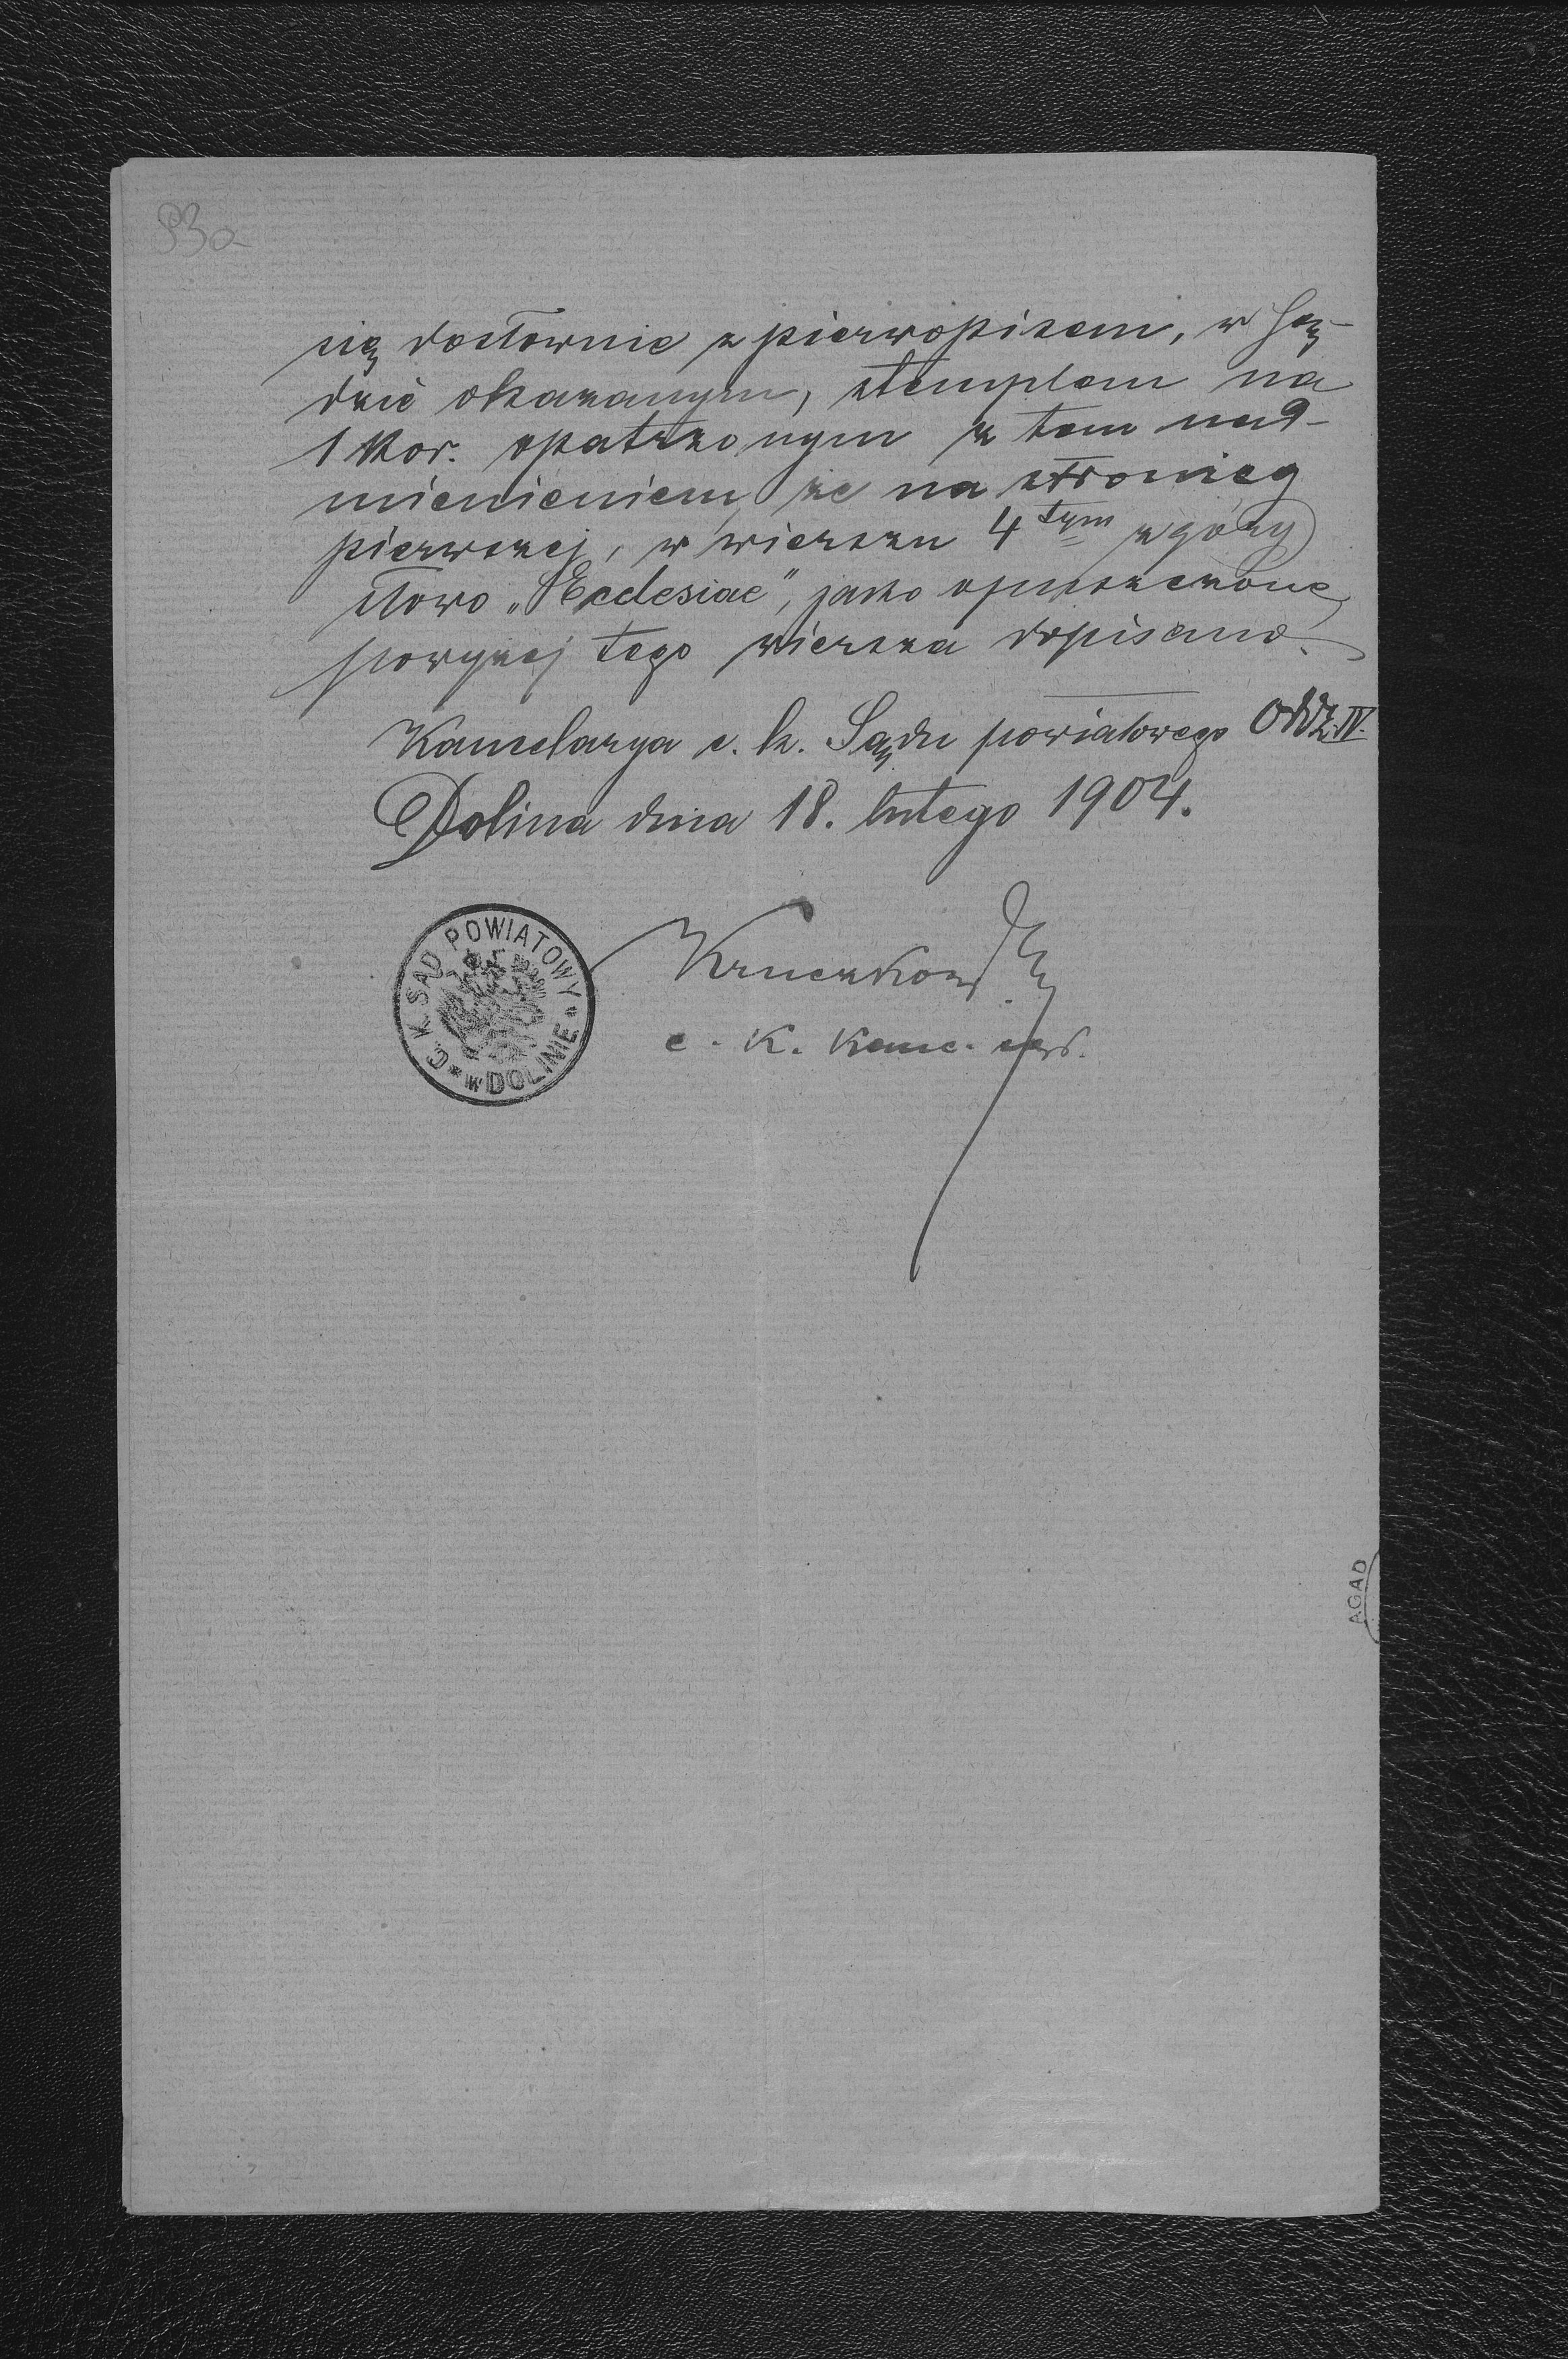 83a
się dosłownie z pierwopisem, w Są-
dzie okazanym, stemplem na
1 Kor. opatrzonym z tem nad-
mienieniem że na stronie
pierwszej, w wierszu 4tym z góry
słowo „Ecclesiae", jako opuszczone,
powyżej tego wiersza dopisano.
Kancelarya c. k. Sądu powiatowego Oddz. IV.
Dolina dnia 18. lutego 1904.
C. K. SĄD POWIATOWY
* w DOLINIE *
c. k. kanc. sąd.
AGAD